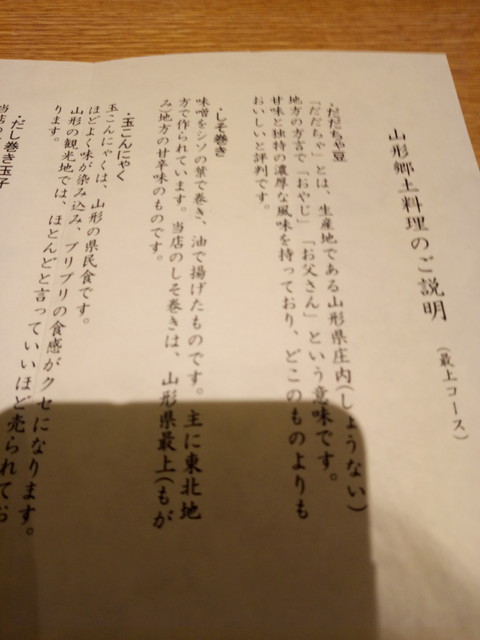 山形郷土料理のご説明
(最上コース)
・だだちゃ豆
「だだちゃ」とは、生産地である山形県庄内(しょうない)
地方の方言で「おやじ」「お父さん」という意味です。
甘味と独特の濃厚な風味を持っており、どこのものよりも
おいしいと評判です。
・しそ巻き
味噌をシソの葉で巻き、油で揚げたものです。主に東北地
方で作られています。当店のしそ巻きは、山形県最上(もが
み)地方の甘辛味のものです。
・玉こんにゃく
玉こんにゃくは、山形の県民食です。
ほどよく味が染み込み、プリプリの食感がクセになります。
山形の観光地では、ほとんどと言っていいほど売られてお
ります。
・だし巻き玉子
当店の